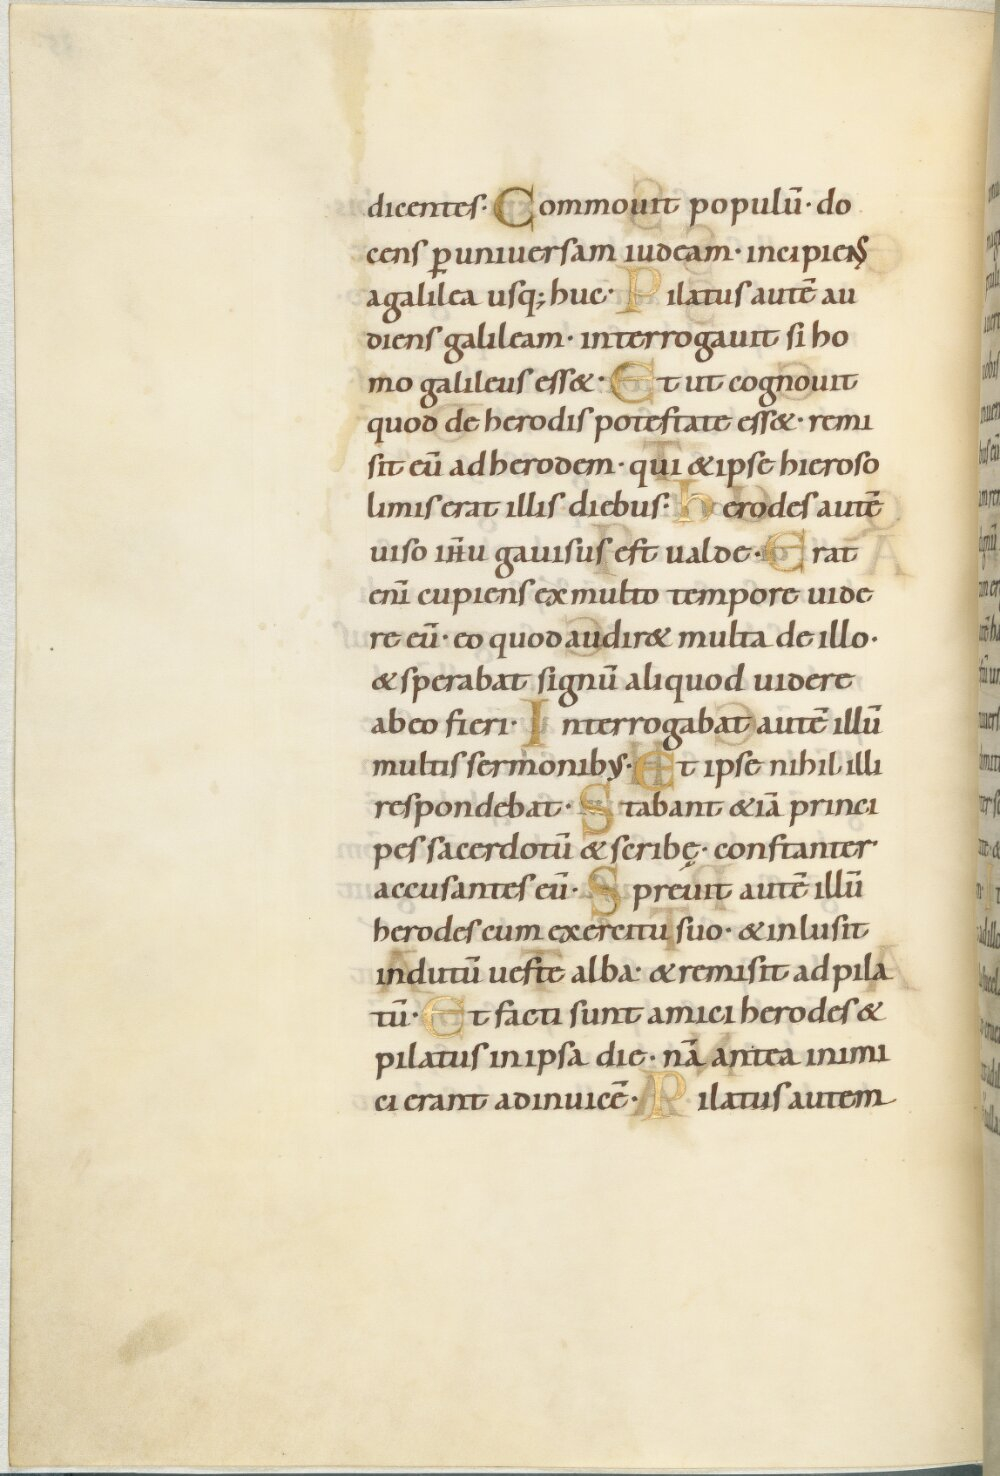 dicentes· Commouit populū· do
cens ꝑuniuersam iudeam· incipiens
agalilea usq; huc· Pilatus autē au
diens galileam· interrogauit si ho
mo galileus ess&· Et ut cognouit
quod de herodis potestate ess&· remi
sit eū adherodem· qui &ipse hieroso
limis erat illis diebus· herodes autē
uiso ih̄u gauisus est ualde· Erat
enī cupiens exmulto tempore uide
re eū· eo quod audir& multa de illo·
&sperabat signū aliquod uidere
abeo fieri· Interrogabat autē illū
multis sermonibꝰ· Et ipse nihil illi
respondebat· Stabant &iā princi
pes sacerdotū & scribę· constanter
accusantes eū· Spreuit autē illū
herodes cum exercitu suo· &inlusit
indutū ueste alba· &remisit adpila
tū· Et facti sunt amici herodes &
pilatus inipsa die· nā antea inimi
ci erant adinuicē· Pilatus autem